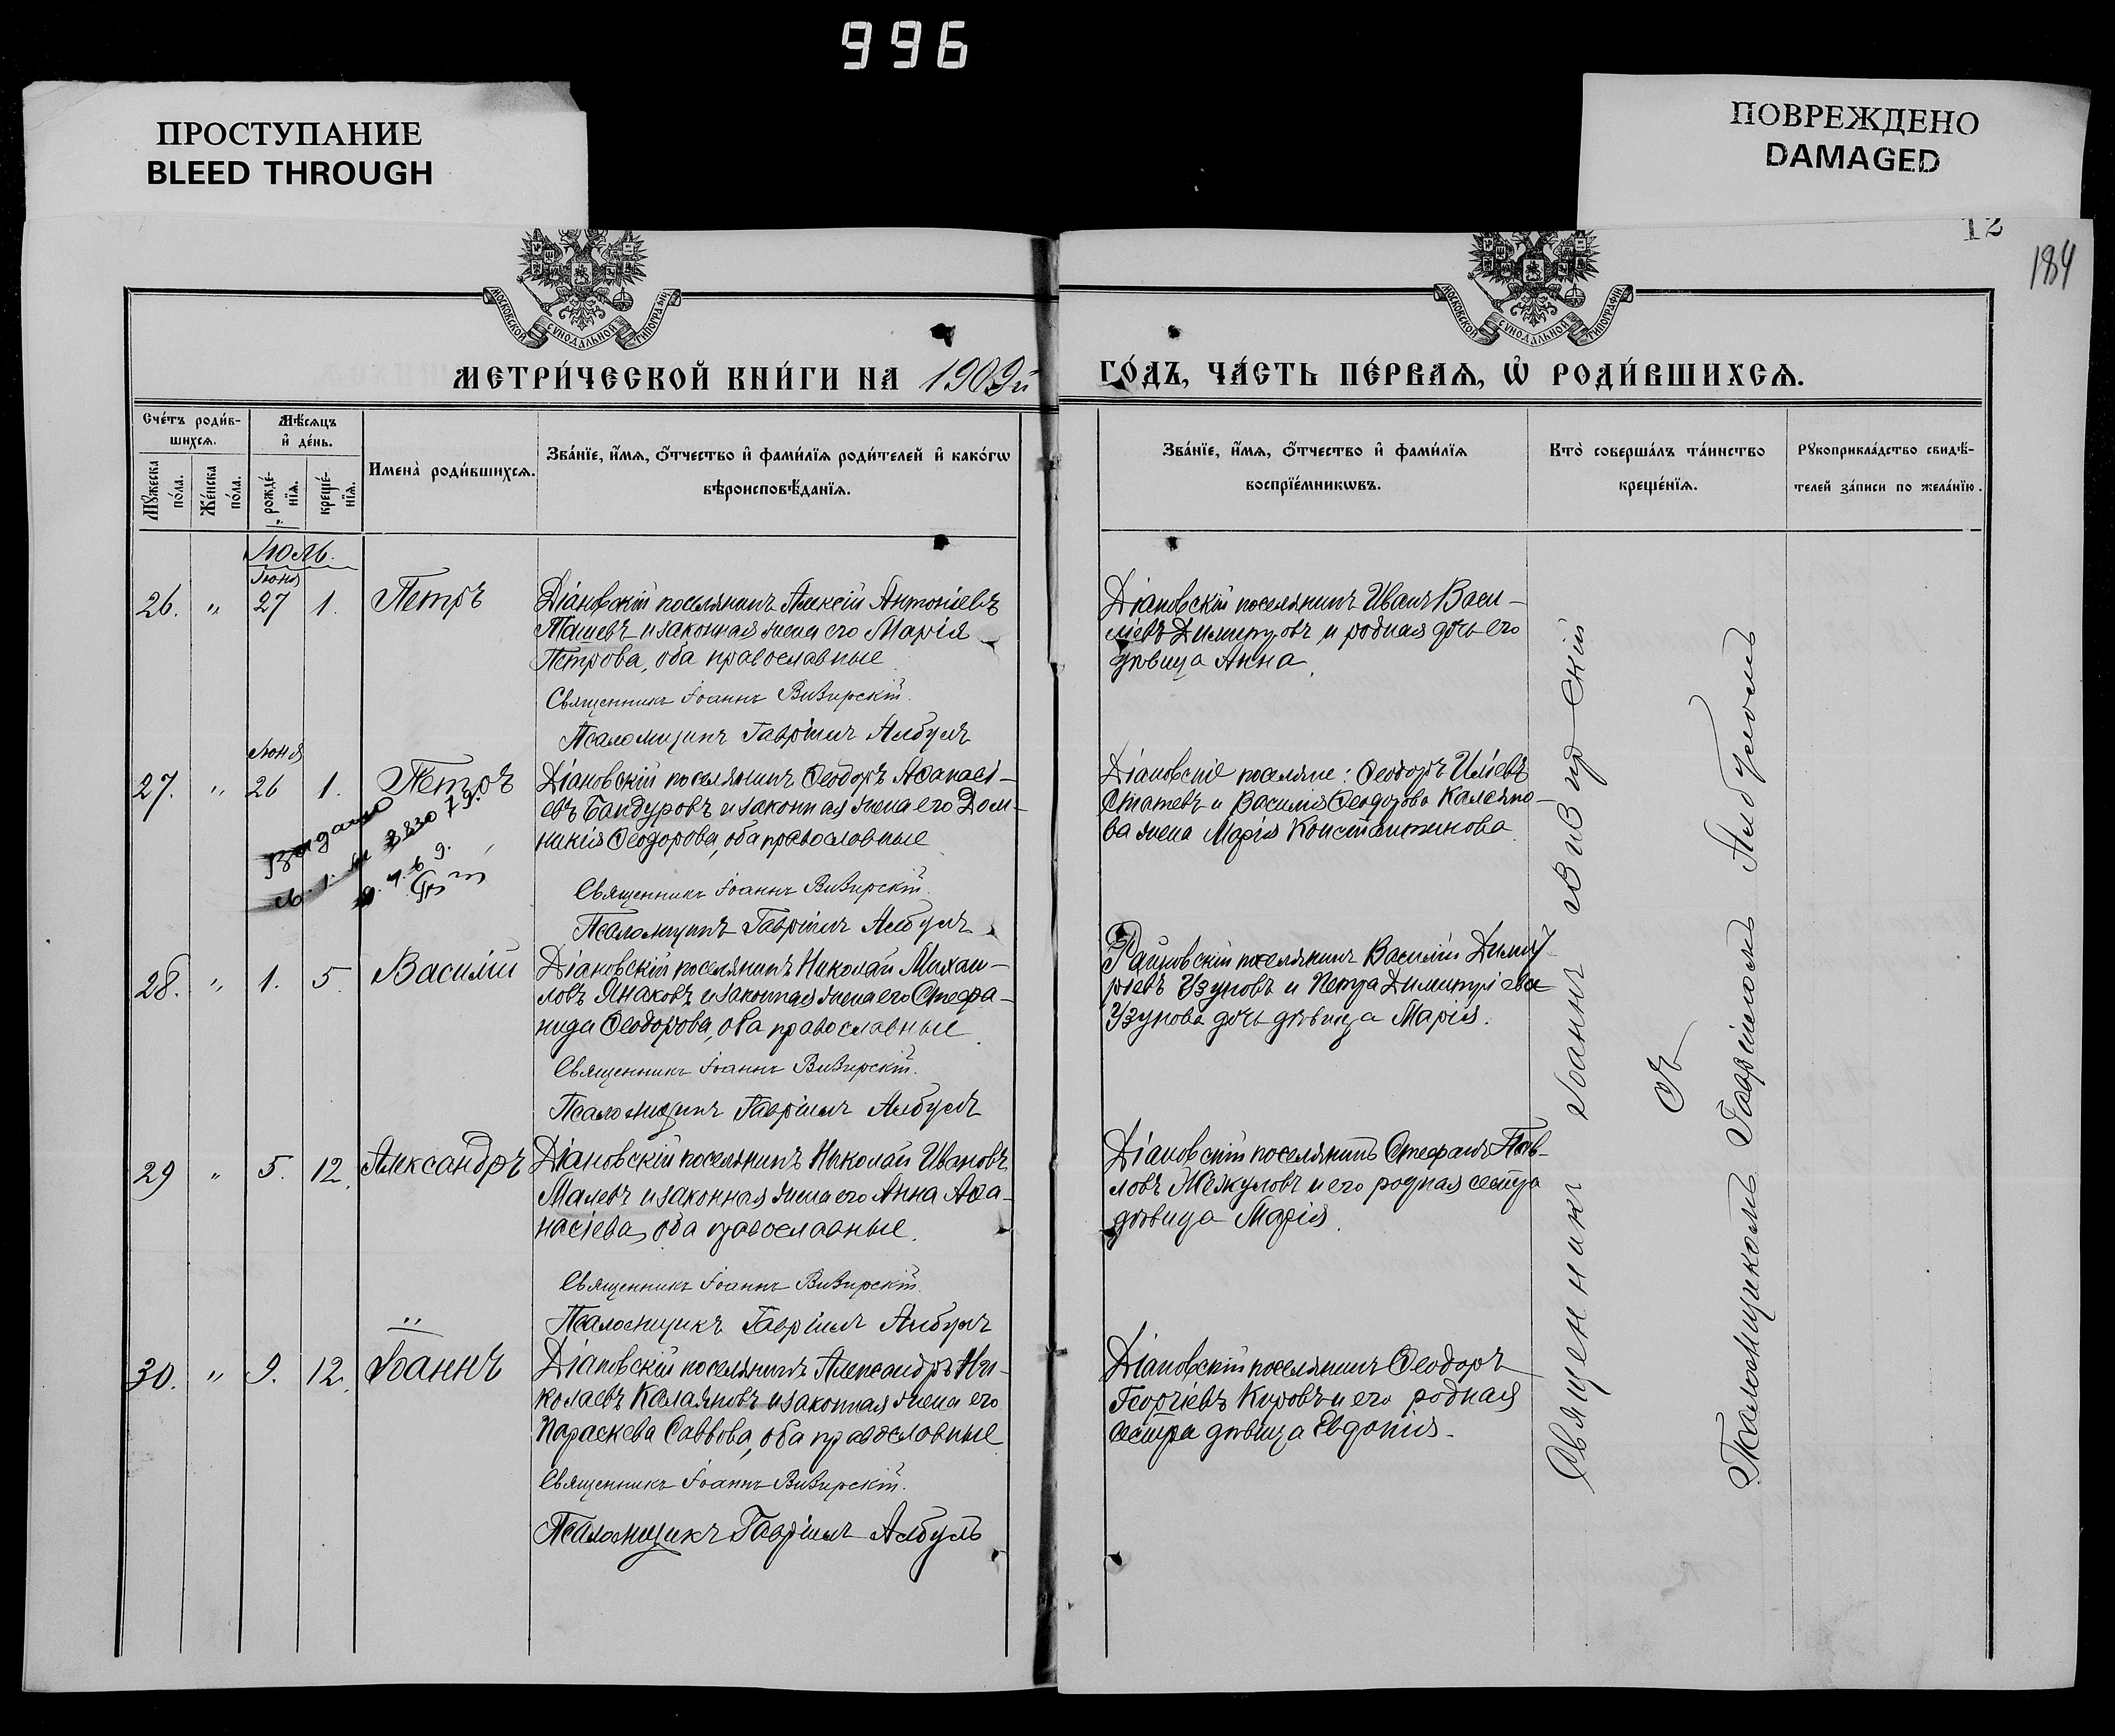 996
ПРОСТУПАНИЕ
BLEED THROUGH
ПОВРЕЖДЕНО
DAMAGED
12
184
МОСКОВСКОЙ СѴНОДАЛЬНОЙ ТИПОГРАФІИ
МОСКОВСКОЙ СѴНОДАЛЬНОЙ ТИПОГРАФІИ
МЕТРИ́ЧЕСКОЙ КНИ́ГИ НА 1909й
ГО́ДЪ, ЧА́СТЬ ПЕ́РВАѦ, Ѡ҆ РОДИ́ВШИХСѦ.
Сче́тъ роди́в-
шихсѧ.
Мѣ́сѧцъ
и҆ де́нь.
Мꙋ́жеска
по́ла.
Же́нска
по́ла.
рожде́-
нїѧ.
креще́-
нїѧ.
Имена̀ роди́вшихсѧ.
Зва́нїе, и҆́мѧ, ѻ҆́тчество и҆ фами́лїѧ роди́телей и҆ како́гѡ
вѣроисповѣ́данїѧ.
Зва́нїе, и҆́мѧ, ѻ҆́тчество и҆ фами́лїѧ
воспрїе́мникѡвъ.
Кто̀ соверша́лъ та́инство
креще́нїѧ.
Рꙋкоприкла́дство свидѣ́-
телей за́писи по жела́нїю.
Іюль.
Іюня
26. " 27 1. Петръ
Діановскій поселянинъ Алексій Антоніевъ
Ташевъ и законная жена его Марія
Петрова, оба православные
Священникъ Іоаннъ Визирскій.
Псаломщикъ Гавріилъ Албулъ
Діановскій поселянинъ Иванъ Васи-
ліевъ Димитровъ и родная дочь его
дѣвица Анна.
Іюня
27. " 26 1. Петръ
Діановскій поселянинъ Ѳеодоръ Аѳанасі-
евъ Бандуровъ и законная жена его Дом-
никія Ѳеодорова, оба православные
Священникъ Іоаннъ Визирскій.
Псаломщикъ Гавріилъ Албулъ
Діановскіе поселяне: Ѳеодоръ Иліевъ
Статевъ и Василія Ѳеодорова Калеяно-
ва жена Марія Константинова
Выдано
28. " 1. 5. Василій
Діановскій поселянинъ Николай Михаи-
ловъ Янаковъ и законная жена его Стефа-
нида Ѳеодорова, оба православные
Священникъ Іоаннъ Визирскій.
Псаломщикъ Гавріилъ Албулъ
поселянинъ Василій Димит-
ріевъ Узуновъ и Петра Димитріева
Узунова дочь дѣвица Марія.
29 " 5. 12. Александръ
Діановскій поселянинъ Николай Ивановъ
Малевъ и законная жена его Анна Аѳа-
насіева, оба православные.
Священникъ Іоаннъ Визирскій.
Псаломщикъ Гавріилъ Албулъ
Діановскій поселянинъ Стефанъ Пав-
ловъ и его родная сестра
дѣвица Марія.
30. " 9. 12. Іоаннъ
Діановскій поселянинъ Александръ Ни-
колаевъ Калаяновъ и законная жена его
Параскева Саввова, оба православные
Священникъ Іоаннъ Визирскій.
Псаломщикъ Гавріилъ Албулъ
Діановскій поселянинъ Ѳеодоръ
Георгіевъ Кировъ и его родная
сестра дѣвица Евдокія.
Священникъ Іоаннъ Визирскій
съ
Псаломщикомъ Гавріиломъ Албуломъ